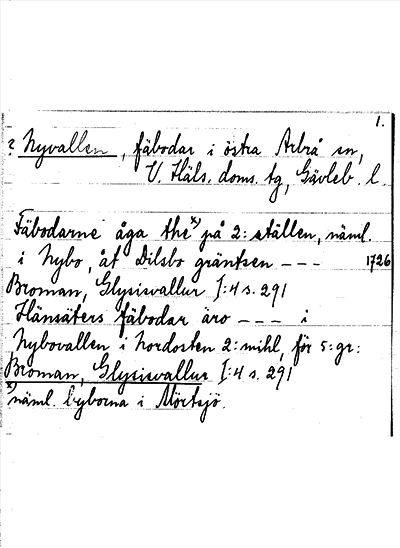 1.
? Nyvallen, fäbodar i östra Arbrå sn,
V. Häls. doms. tg, Gävleb. l.
Fäbodarne åga the x) på 2: ställen, näml.
i Nybo, åt Dilsbo gräntsen --- 1726
Broman, Glysisvallur I:4 s. 291
Hänsäters fäbodar äro --- i
Nybovallen i Nordosten 2: mihl, för 5: gr:
Broman, Glysisvallur I:4 s. 291
x) näml. byborna i Mörtsjö.